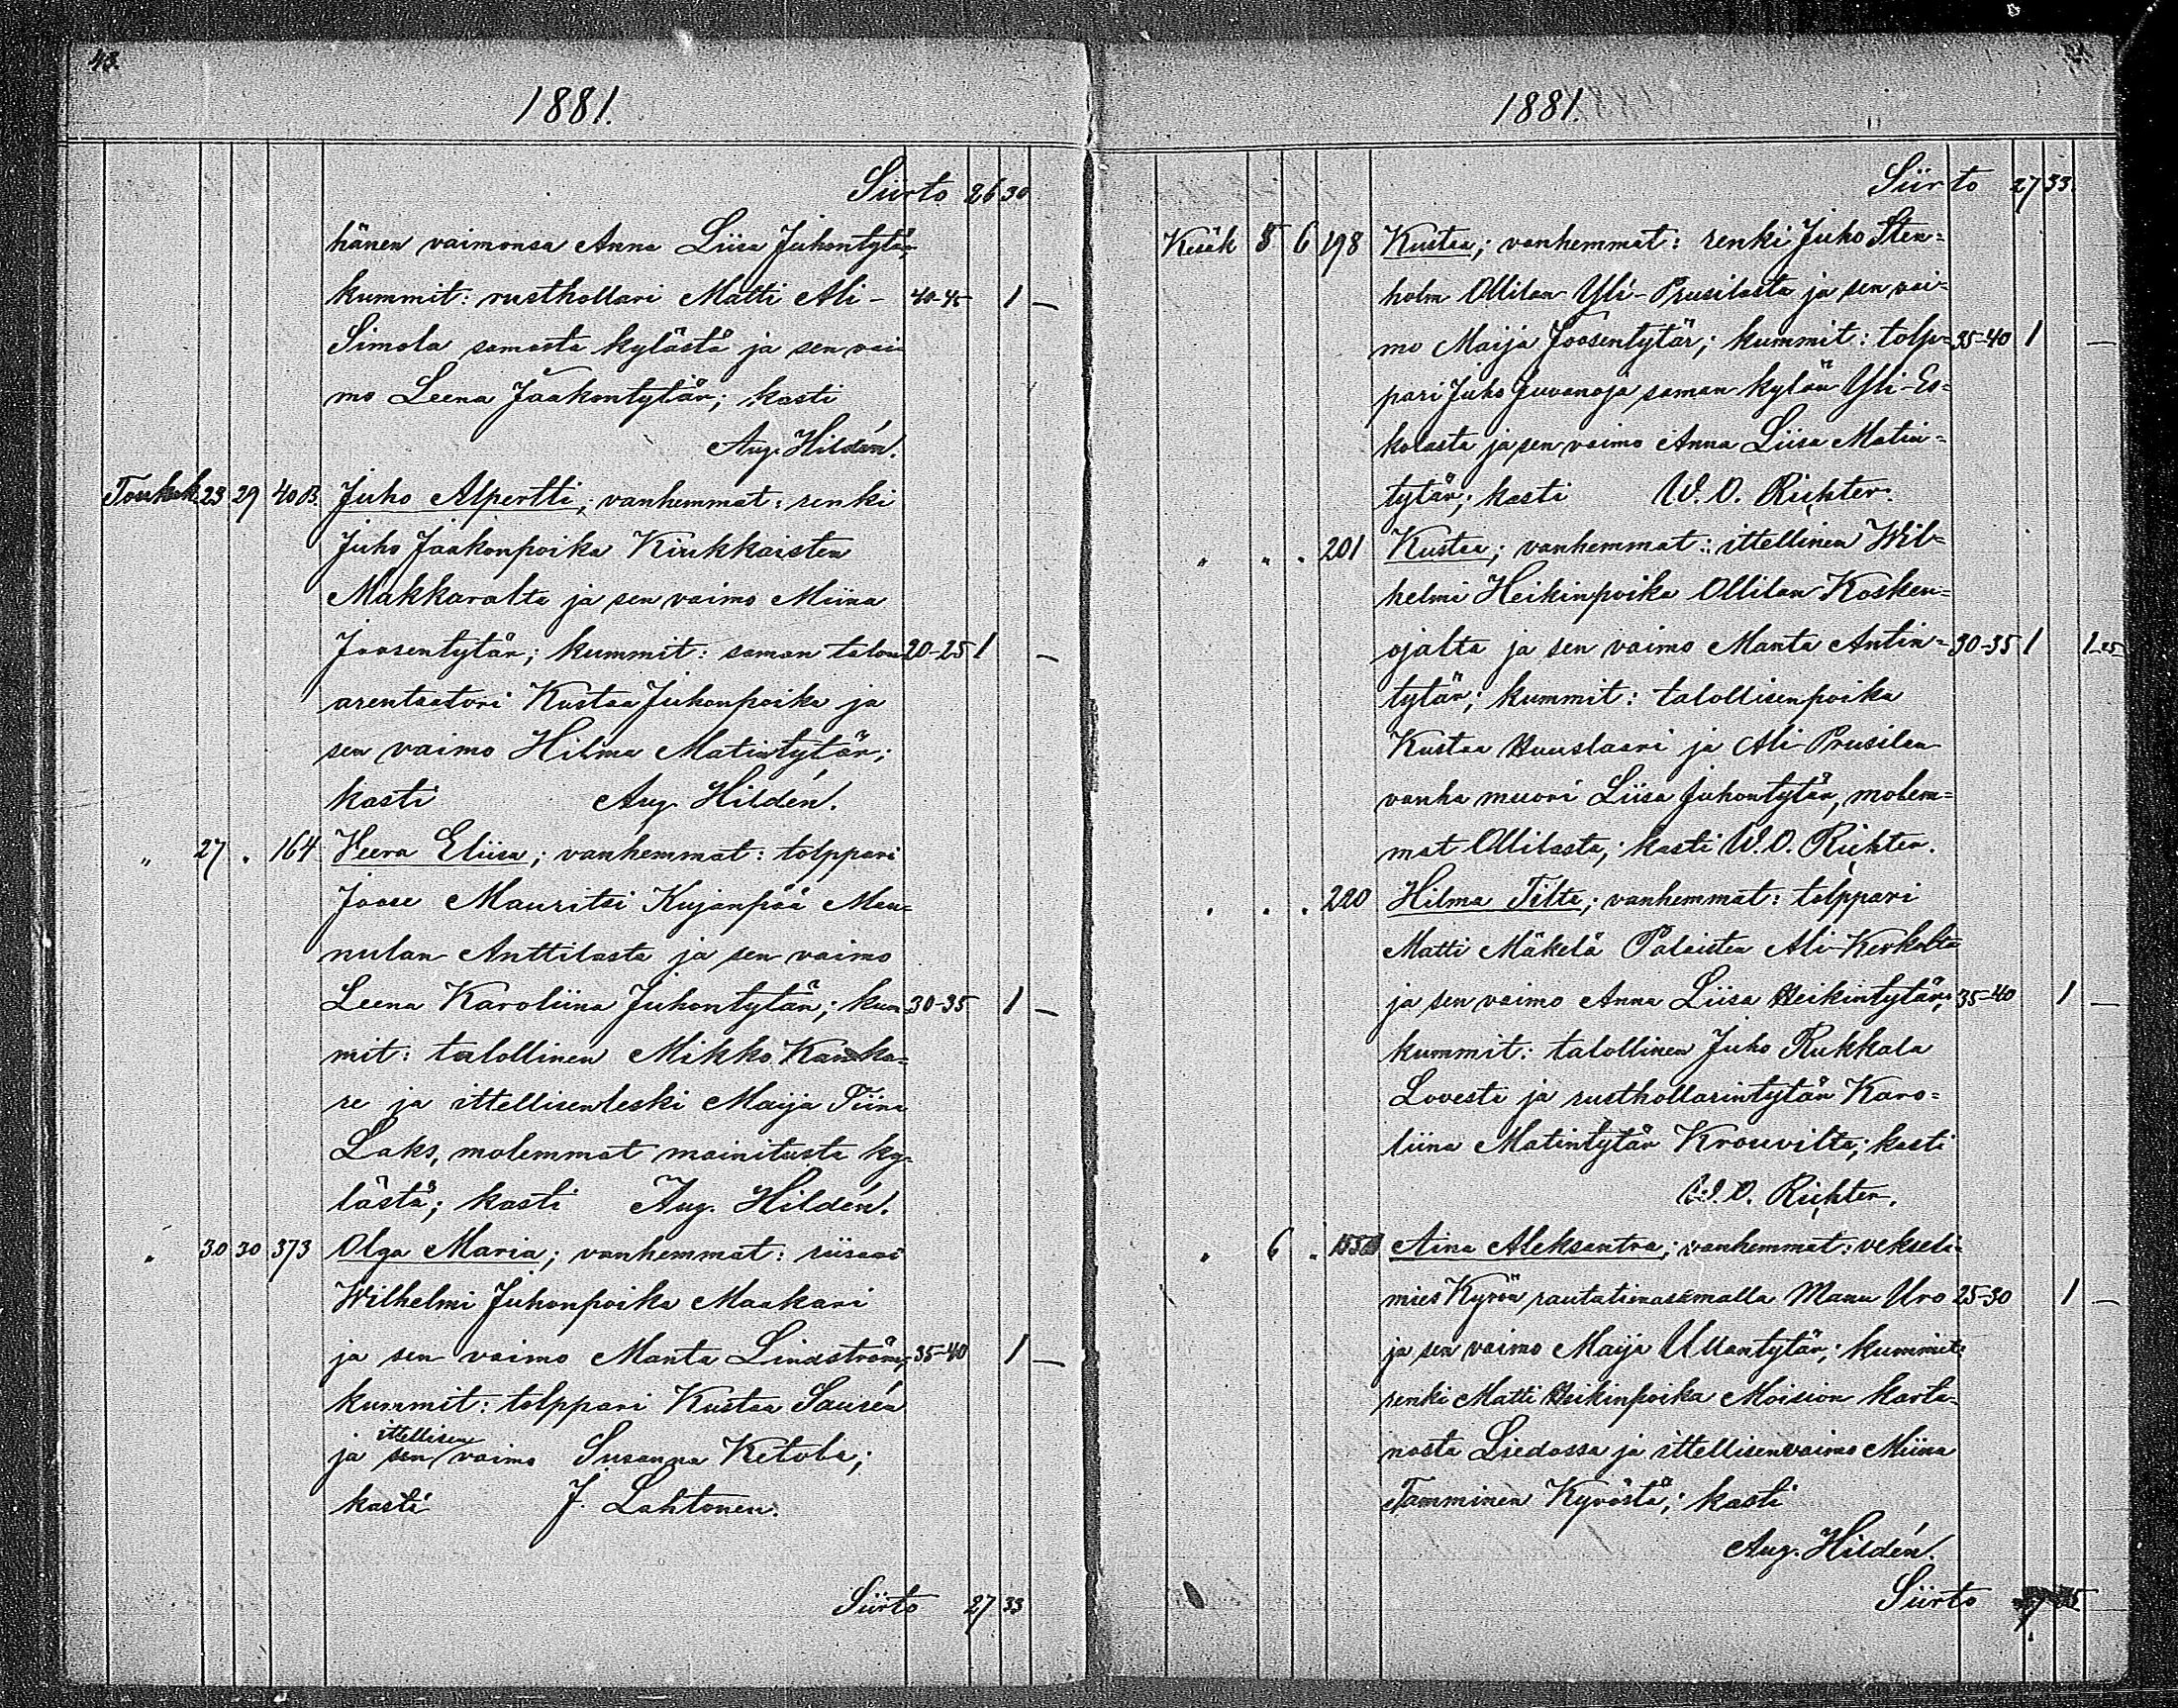 43.
1881.
Siirto 26 30
hänen vaimonsa Anna Liisa Juhontytär;
kummit: rusthollari Matti Ali- 40-45 1 —
Simola samasta kylästä ja sen vai-
mo Leena Jaakontytär; kasti
Aug. Hildén.
Toukok. 23 29 40 B. Juho Alpertti; vanhemmat: renki
Juho Jaakonpoika Kiukkaisten
Makkaralta ja sen vaimo Miina
Joosentytär; kummit: saman talon 20-25 1 —
arentaatori Kustaa Juhonpoika ja
sen vaimo Hilma Matintytär;
kasti Aug. Hildén.
" 27 " 164 Veera Eliisa; vanhemmat: tolppari
Joose Mauritsi Kujanpää Men=
nulan Anttilasta ja sen vaimo
Leena Karoliina Juhontytär; kum- 30-35 1 —
mit: talollinen Mikko Kanka=
re ja ittellisenleski Maija Tiina
Laks, molemmat mainitusta ky=
lästä; kasti Aug. Hildén.
" 30 30 373 Olga Maria; vanhemmat:
Wilhelmi Juhonpoika Maakari
ja sen vaimo Manta Lindström; 35-40 1 —
kummit: tolppari Kustaa Saurén
ja sen ittellisen vaimo Susanna Ketola;
kasti J. Lahtonen.
Siirto 27 33
1881.
Siirto 27 33.
Kesäk 5 6 198 Kustaa; vanhemmat: renki Juho Sten=
holm Ollilan Yli-Prusilasta ja sen vai=
mo Maija Joosentytär; kummit: tolp= 35-40 1 —
pari Juho Juvanoja saman kylän Yli-Es=
kolasta ja sen vaimo Anna Liisa Matin=
tytär; kasti W. O. Richter.
" " " 201 Kustaa; vanhemmat: ittellinen Wil=
helmi Heikinpoika Ollilan Kosken=
ojalta ja sen vaimo Manta Antin= 30-35 1 1 25
tytär; kummit: talollisenpoika
Kustaa Huuslaari ja Ali-Prusilan
vanha muori Liisa Juhontytär, molem=
mat Ollilasta; kasti W. O. Richter.
" " " 220 Hilma Tilta; vanhemmat: tolppari
Matti Mäkelä Palaisten Ali-Kerkolta
ja sen vaimo Anna Liisa Heikintytär; 35-40 1 —
kummit: talollinen Juho Rukkala
Lovesta ja rusthollarintytär Karo=
liina Matintytär Krouvilta; kasti
W. O. Richter.
" 6 " Aina Aleksantra; vanhemmat: vekseli=
mies Kyrön rautatienasemalla Manu Uro 25-30 1 —
ja sen vaimo Maija Ullantytär; kummit:
renki Matti Heikinpoika Moision karta=
nosta Liedossa ja ittellisenvaimo Miina
Tamminen Kyröstä; kasti
Aug. Hildén.
Siirto